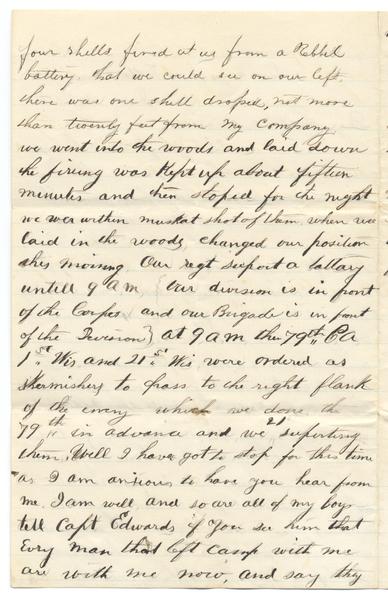 four shells fired at us from a Rebbel
battery that we could see on our left.
there was one shell droped, not more
than twenty feet from my company
we went into the woods and laid down
the firing was Kept up about fifteen
minutes and then stoped for the night
we wer within muskat shot of them when we
laid in the woods, changed our position
this morning. Our regt support a battary
untill 9 am (our division is in front
of the Corpse and our Brigade is in front
of the Devision) at 9 am the 79th Pa
1st Wis and 21st Wis were ordered as
skermishers to pass to the right flank
of the enemy which we done the
79th in advance and we 21st supporting
them. Well I have got to stop for this time
as I am anxious to have you hear from
me. I am well and so are all of my boys
tell Capt Edwards if you see him that
Evry man that left camp with me
are with me now, and say they